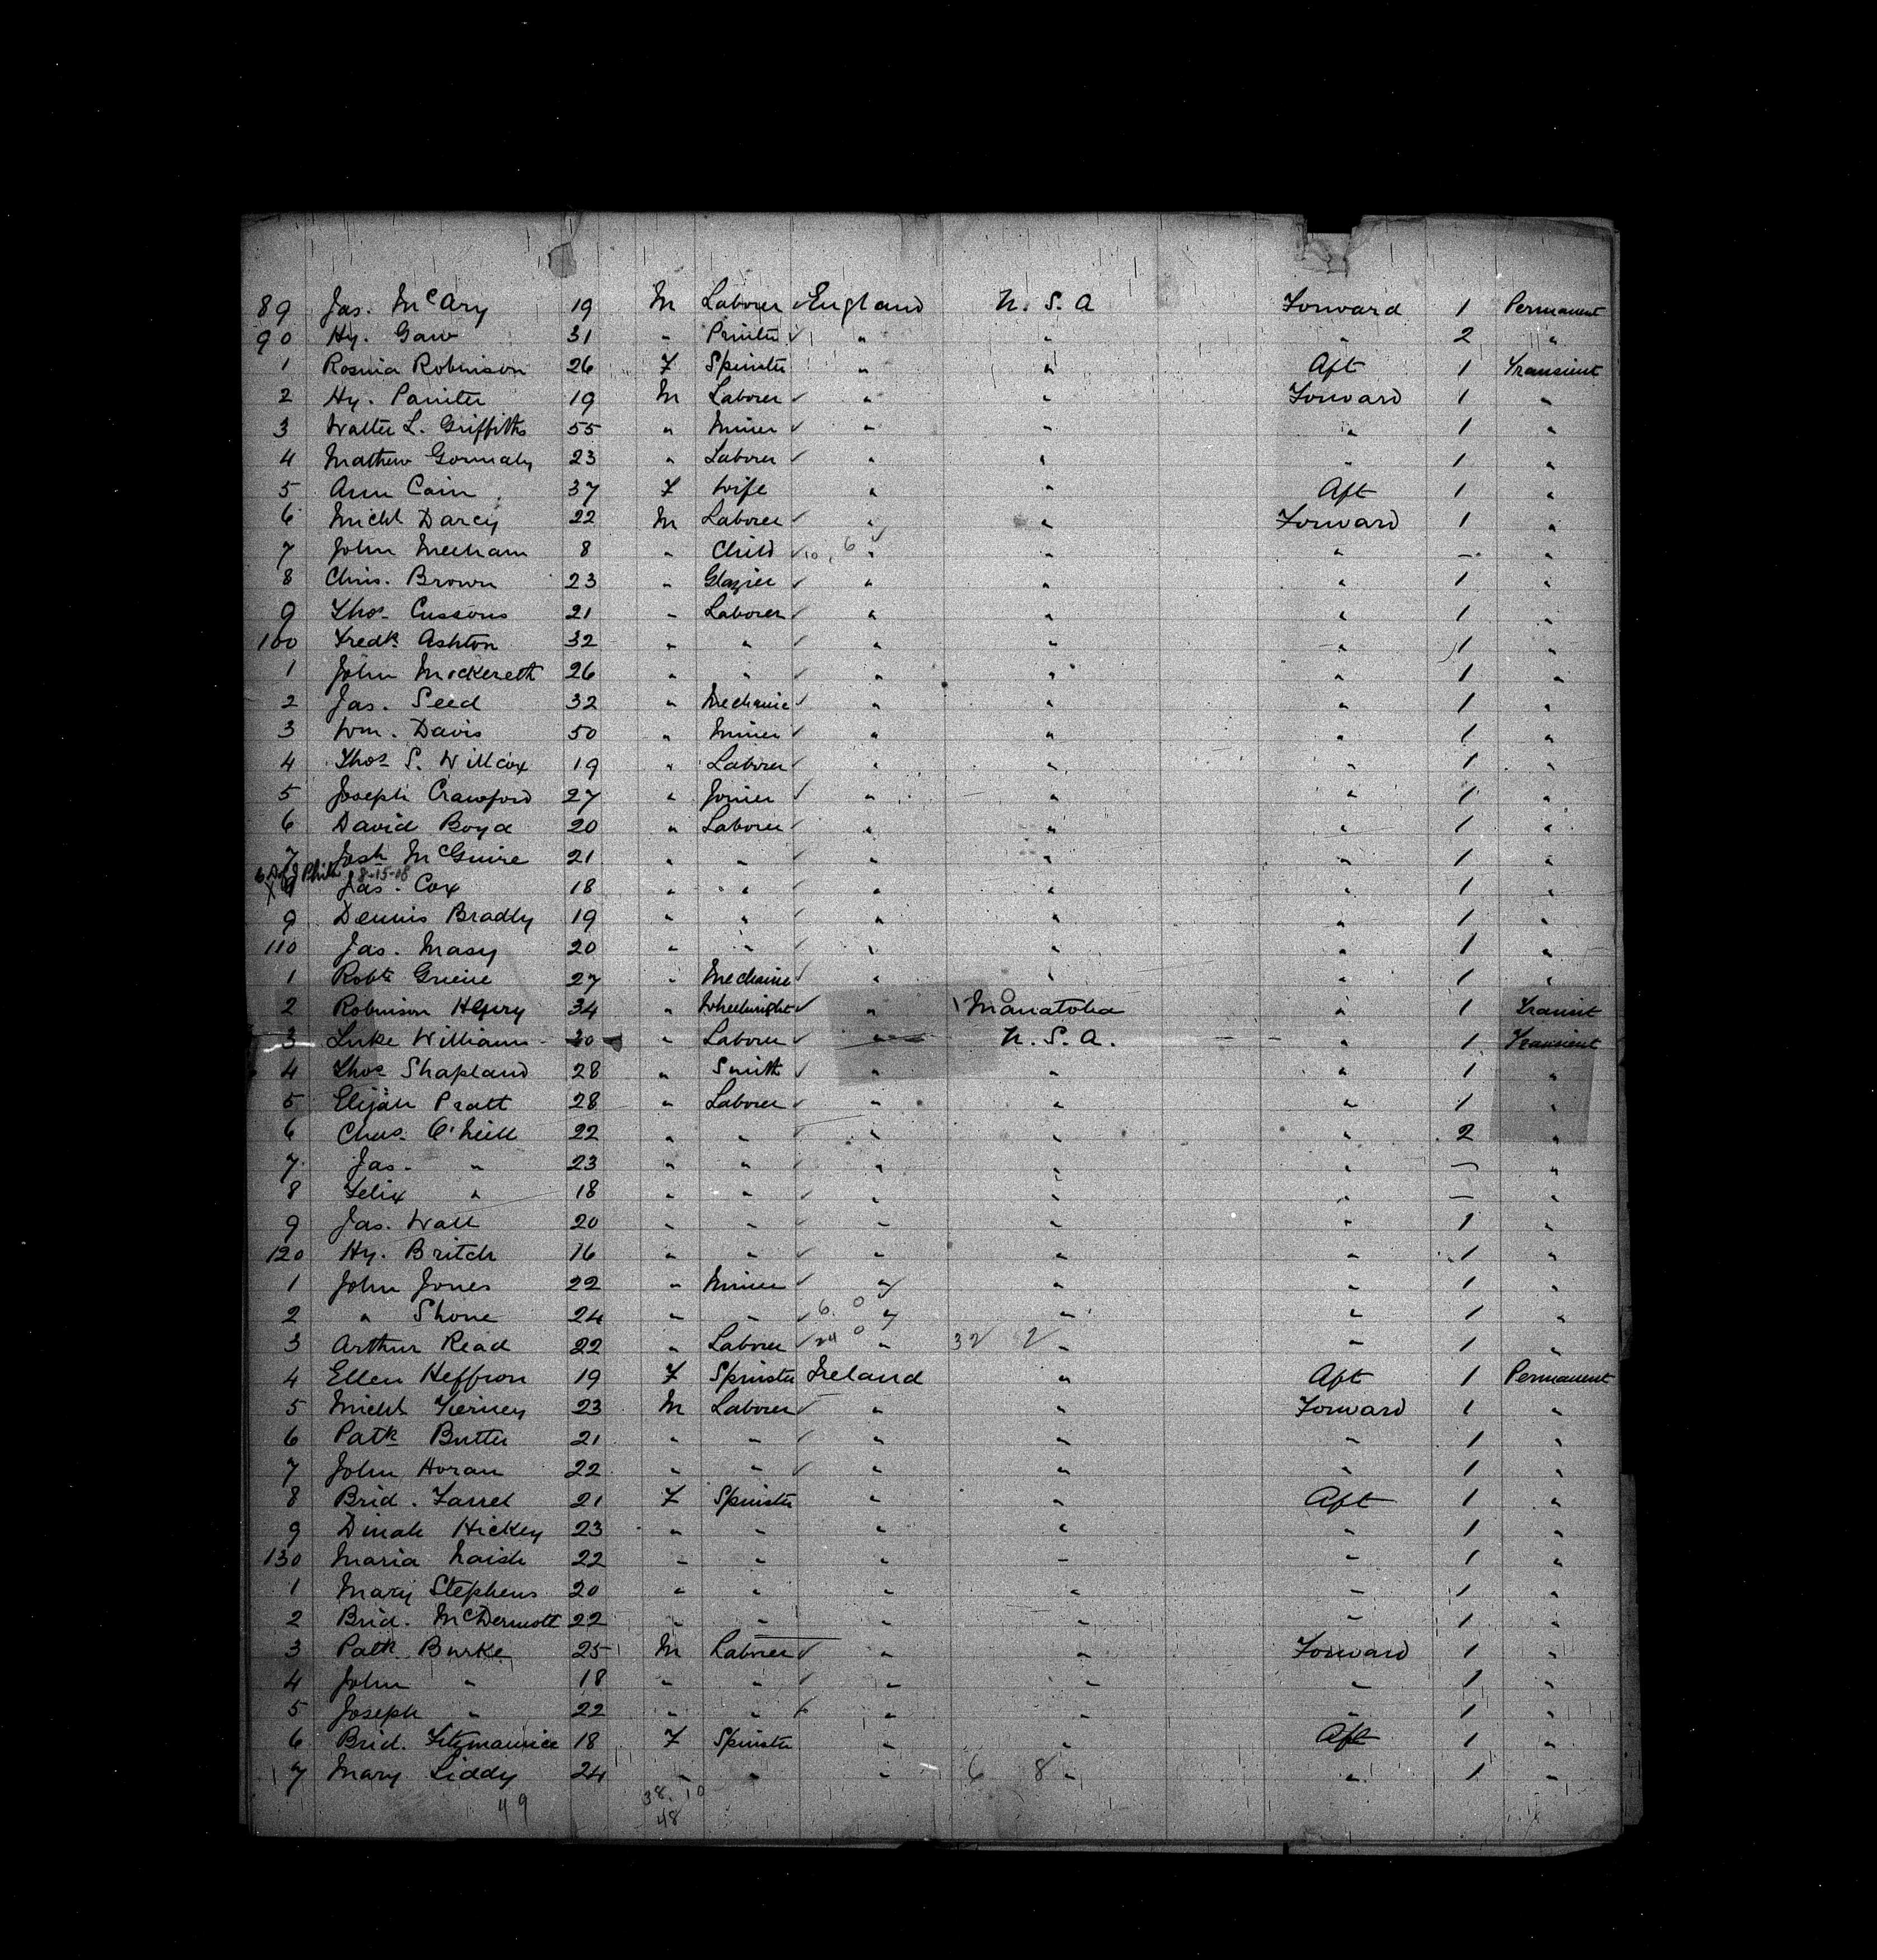 89 Jas. McAry 19 M Laborer England U.S.A Forward 1 Permanent
90 Hy. Gaw 31 " Printer " " " 2 "
1 Rosina Robinson 26 F Spinster " " Aft 1 Transient
2 Hy. Painter 19 M Laborer " " Forward 1 "
3 Walter L. Griffiths 55 " Miner " " " 1 "
4 Mathew Gormaly 23 " Laborer " " " 1 "
5 Ann Cain 37 F Wife " " Aft 1 "
6 Michl Darcy 22 M Laborer " " Forward 1 "
7 John Meeham 8 " Child 10, 6 " " " — "
8 Chris. Brown 23 " Glazier " " " 1 "
9 Thos. Cussons 21 " Laborer " " " 1 "
100 Fredk Ashton 32 " " " " " 1 "
1 John Mockereth 26 " " " " " 1 "
2 Jas. Seed 32 " Mechanic " " " 1 "
3 Wm. Davis 50 " Miner " " " 1 "
4 Thos S. Willcox 19 " Laborer " " " 1 "
5 Joseph Crawford 27 " Joiner " " " 1 "
6 David Boyd 20 " Laborer " " " 1 "
7 Josh McGuire 21 " " " " " 1 "
Phila 8-15-08
X Jas. Cox 18 " " " " " 1 "
9 Dennis Bradly 19 " " " " " 1 "
110 Jas. Masy 20 " " " " " 1 "
1 Robt Greene 27 " Mechanic " " " 1 "
2 Robinson Henry 34 " Wheelwright " Manatoba " 1 Transit
3 Luke Williams 30 " Laborer " U.S.A. " 1 Transient
4 Thos Shapland 28 " Smith " " " 1 "
5 Elijah Pratt 28 " Laborer " " " 1 "
6 Chas. O'Neill 22 " " " " " 2 "
7 Jas. " 23 " " " " " — "
8 Felix " 18 " " " " " — "
9 Jas. Wall 20 " " " " " 1 "
120 Hy. Britch 16 " " " " " 1 "
1 John Jones 22 " Miner " " " 1 "
2 " Shone 24 " " 6. 0 " " " 1 "
3 Arthur Read 22 " Laborer 24 0 " 32 2 " " 1 "
4 Ellen Heffron 19 F Spinster Ireland " Aft 1 Permanent
5 Michl Tierney 23 M Laborer " " Forward 1 "
6 Patk Butter 21 " " " " " 1 "
7 John Horan 22 " " " " " 1 "
8 Brid. Farrel 21 F Spinster " " Aft 1 "
9 Dinah Hickey 23 " " " " " 1 "
130 Maria Naish 22 " " " " " 1 "
1 Mary Stephens 20 " " " " " 1 "
2 Brid. McDermott 22 " " " " " 1 "
3 Patk Burke 25 M Laborer " " Forward 1 "
4 John " 18 " " " " " 1 "
5 Joseph " 22 " " " " " 1 "
6 Brid. Fitzmaurice 18 F Spinster " " Aft 1 "
7 Mary Liddy 24 " " " 6 8 " " 1 "
49 38. 10
48